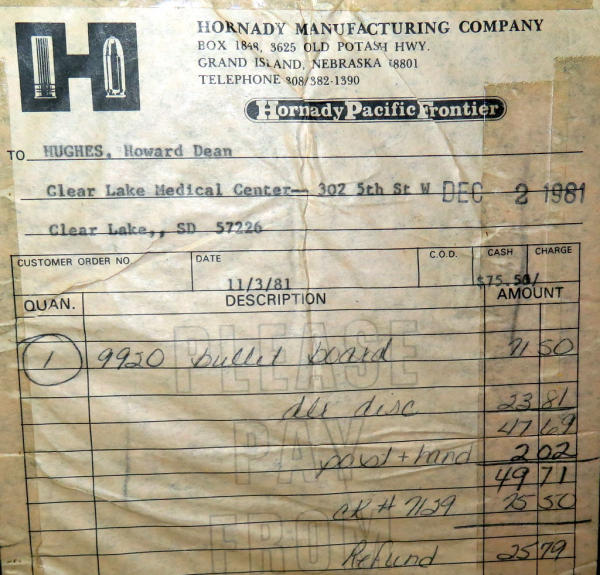 HORNADY MANUFACTURING COMPANY
BOX 1848, 3625 OLD POTASH HWY.
GRAND ISLAND, NEBRASKA 68801
TELEPHONE 308/382-1390
Hornady Pacific Frontier
TO HUGHES, Howard Dean
Clear Lake Medical Center-- 302 5th St W
DEC 2 1981
Clear Lake,, SD 57226
CUSTOMER ORDER NO. DATE C.O.D. CASH CHARGE
11/3/81 $75.50/
QUAN. DESCRIPTION AMOUNT
1 9920 bullet board 71 50
dlr disc 23 81
47 69
post + hand 2 02
49 71
CK # 7129 75 50
Refund 25 79
PLEASE
PAY
FROM